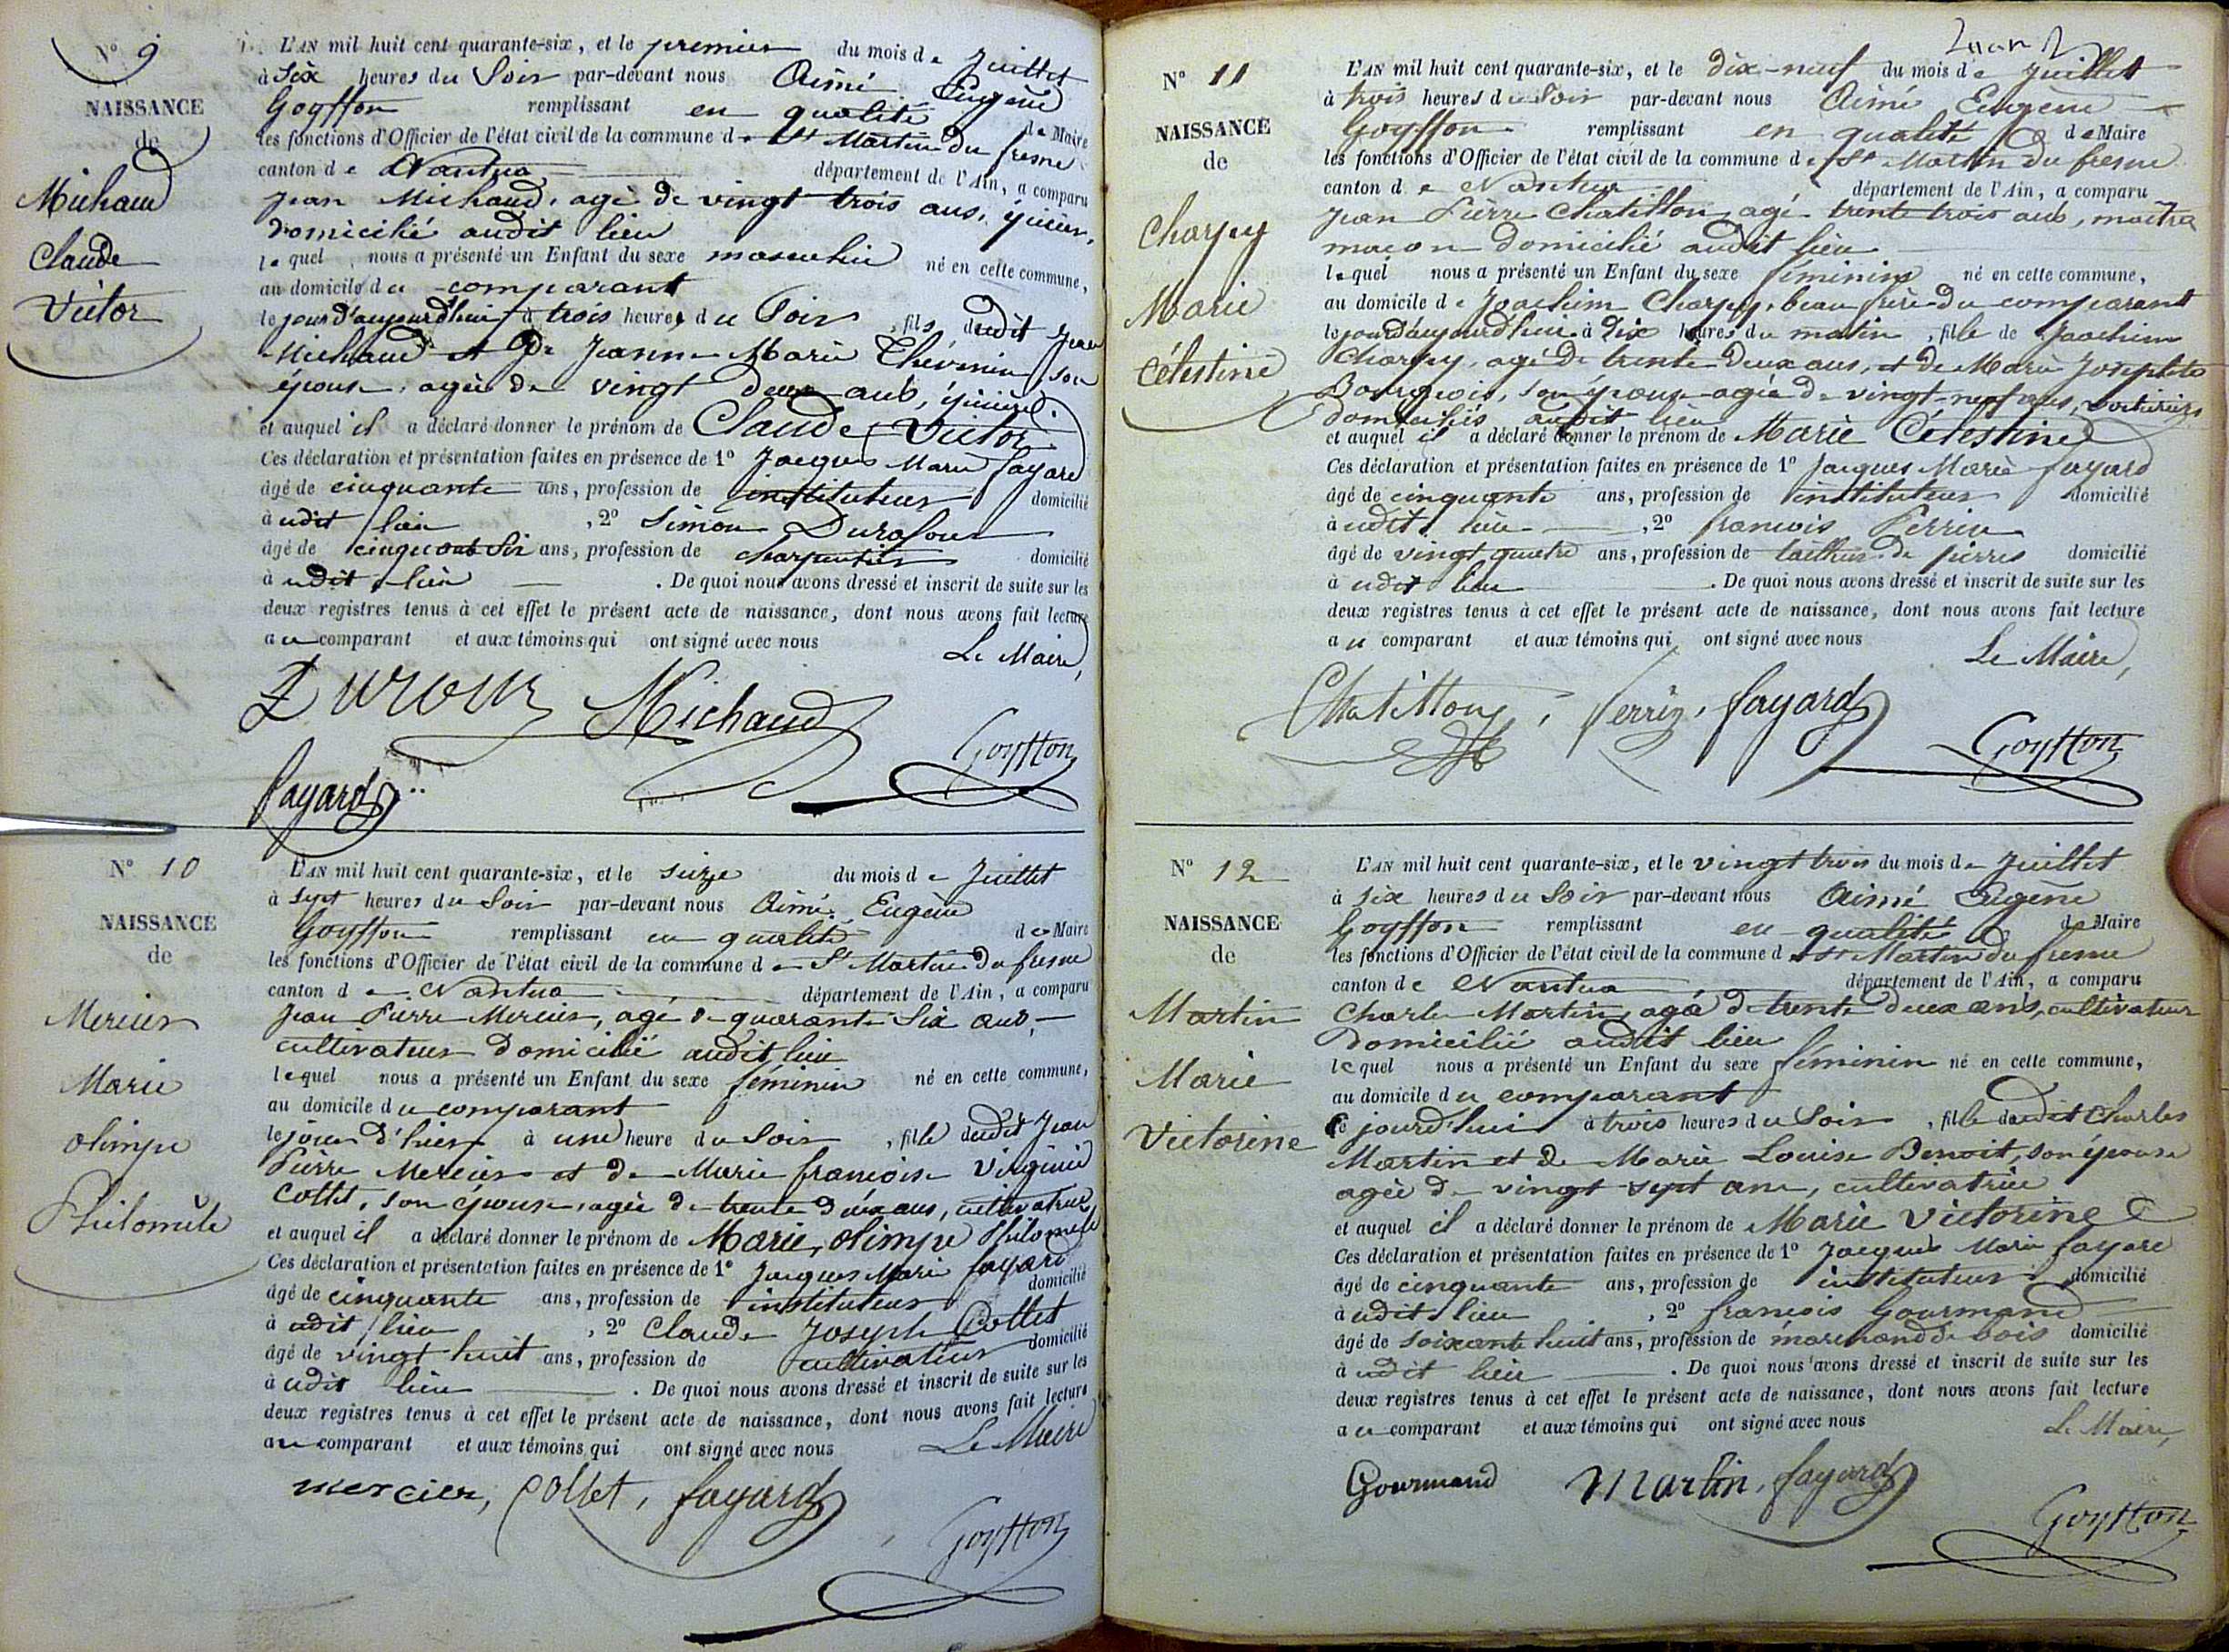 N° 9
NAISSANCE
de
Michaud
Claude
Victor
L'AN mil huit cent quarante-six, et le premier du mois de Juillet
à six heures du Soir par-devant nous Aimé Eugène
Goyffon remplissant en qualité de Maire
les fonctions d'Officier de l'état civil de la commune de St Martin du fresne
canton de Nantua département de l'Ain, a comparu
Jean Michaud, agé de vingt trois ans,
domicilié audit lieu
lequel nous a présenté un Enfant du sexe masculin né en cette commune,
au domicile du comparant
le jour d'aujourd'hui à trois heures du Soir, fils dudit Jean
Michaud et de Jeanne Marie Thévenin, son
épouse, agée de vingt deux ans,
et auquel il a déclaré donner le prénom de Claude Victor
Ces déclaration et présentation faites en présence de 1° Jacques Marie fayard
âgé de cinquante ans, profession de instituteur domicilié
à udit lieu, 2° Simon Durafour
âgé de cinquante six ans, profession de charpentier domicilié
à udit lieu. De quoi nous avons dressé et inscrit de suite sur les
deux registres tenus à cet effet le présent acte de naissance, dont nous avons fait lecture
au comparant et aux témoins qui ont signé avec nous
Le Maire,
Michaud
Goyffon
fayard
N° 10
NAISSANCE
de
Mercier
Marie
olimpe
Philomèle
L'AN mil huit cent quarante-six, et le seize du mois de Juillet
à sept heures du Soir par-devant nous Aimé Eugène
Goyffon remplissant en qualité de Maire
les fonctions d'Officier de l'état civil de la commune de St Martin du fresne
canton de Nantua département de l'Ain, a comparu
Jean Pierre Mercier, agé de quarante Six ans,
cultivateur domicilié audit lieu
lequel nous a présenté un Enfant du sexe féminin né en cette commune,
au domicile du comparant
le jour d'hier à une heure du Soir, fille dudit Jean
Pierre Mercier et de Marie françoise Virginie
Collet, son épouse, agée de trente deux ans, cultivatrice
et auquel il a déclaré donner le prénom de Marie, olimpe Philomèle
Ces déclaration et présentation faites en présence de 1° Jacques Marie fayard
âgé de cinquante ans, profession de instituteur domicilié
à udit lieu, 2° Claude Joseph Collet
âgé de vingt huit ans, profession de cultivateur domicilié
à udit lieu. De quoi nous avons dressé et inscrit de suite sur les
deux registres tenus à cet effet le présent acte de naissance, dont nous avons fait lecture
au comparant et aux témoins qui ont signé avec nous
Le Maire
mercier, Collet, fayard
Goyffon
N° 11
NAISSANCE
de
Charpy
Marie
Célestine
L'AN mil huit cent quarante-six, et le dix-neuf du mois de Juillet
à trois heures du Soir par-devant nous Aimé Eugène
Goyffon remplissant en qualité de Maire
les fonctions d'Officier de l'état civil de la commune de St Martin du fresne
canton de Nantua département de l'Ain, a comparu
Jean Pierre Chatillon, agé trente trois ans, maitre
maçon domicilié audit lieu
lequel nous a présenté un Enfant du sexe féminin né en cette commune,
au domicile de Joachim Charpy, beau frère du comparant
le jourd'aujourd'hui à Dix heures du matin, fille de Joachim
Charpy, agé de trente deux ans, et de Marie Josephte
Bourgeois, son épouse agée de vingt-neuf ans, voituriers
domiciliés audit lieu
et auquel il a déclaré donner le prénom de Marie Célestine
Ces déclaration et présentation faites en présence de 1° Jacques Marie fayard
âgé de cinquante ans, profession de instituteur domicilié
à udit lieu, 2° françois Perrin
âgé de vingt quatre ans, profession de tailleur de pierres domicilié
à udit lieu. De quoi nous avons dressé et inscrit de suite sur les
deux registres tenus à cet effet le présent acte de naissance, dont nous avons fait lecture
au comparant et aux témoins qui ont signé avec nous
Le Maire,
Chatillon, Perrin, fayard
Goyffon
N° 12
NAISSANCE
de
Martin
Marie
Victorine
L'AN mil huit cent quarante-six, et le vingt trois du mois de Juillet
à six heures du Soir par-devant nous Aimé Eugène
Goyffon remplissant en qualité de Maire
les fonctions d'Officier de l'état civil de la commune de St Martin du fresne
canton de Nantua département de l'Ain, a comparu
Charles Martin, agé de trente deux ans, cultivateur
domicilié audit lieu
lequel nous a présenté un Enfant du sexe féminin né en cette commune,
au domicile du comparant
Ce jourd'hui à trois heures du Soir, fille dudit Charles
Martin et de Marie Louise Benoit, son épouse
agée de vingt sept ans, cultivatrice
et auquel il a déclaré donner le prénom de Marie Victorine
Ces déclaration et présentation faites en présence de 1° Jacques Marie fayard
âgé de cinquante ans, profession de instituteur domicilié
à udit lieu, 2° françois Gourmand
âgé de soixante huit ans, profession de marchand de bois domicilié
à udit lieu. De quoi nous avons dressé et inscrit de suite sur les
deux registres tenus à cet effet le présent acte de naissance, dont nous avons fait lecture
au comparant et aux témoins qui ont signé avec nous
Le Maire,
Gourmand Martin, fayard
Goyffon